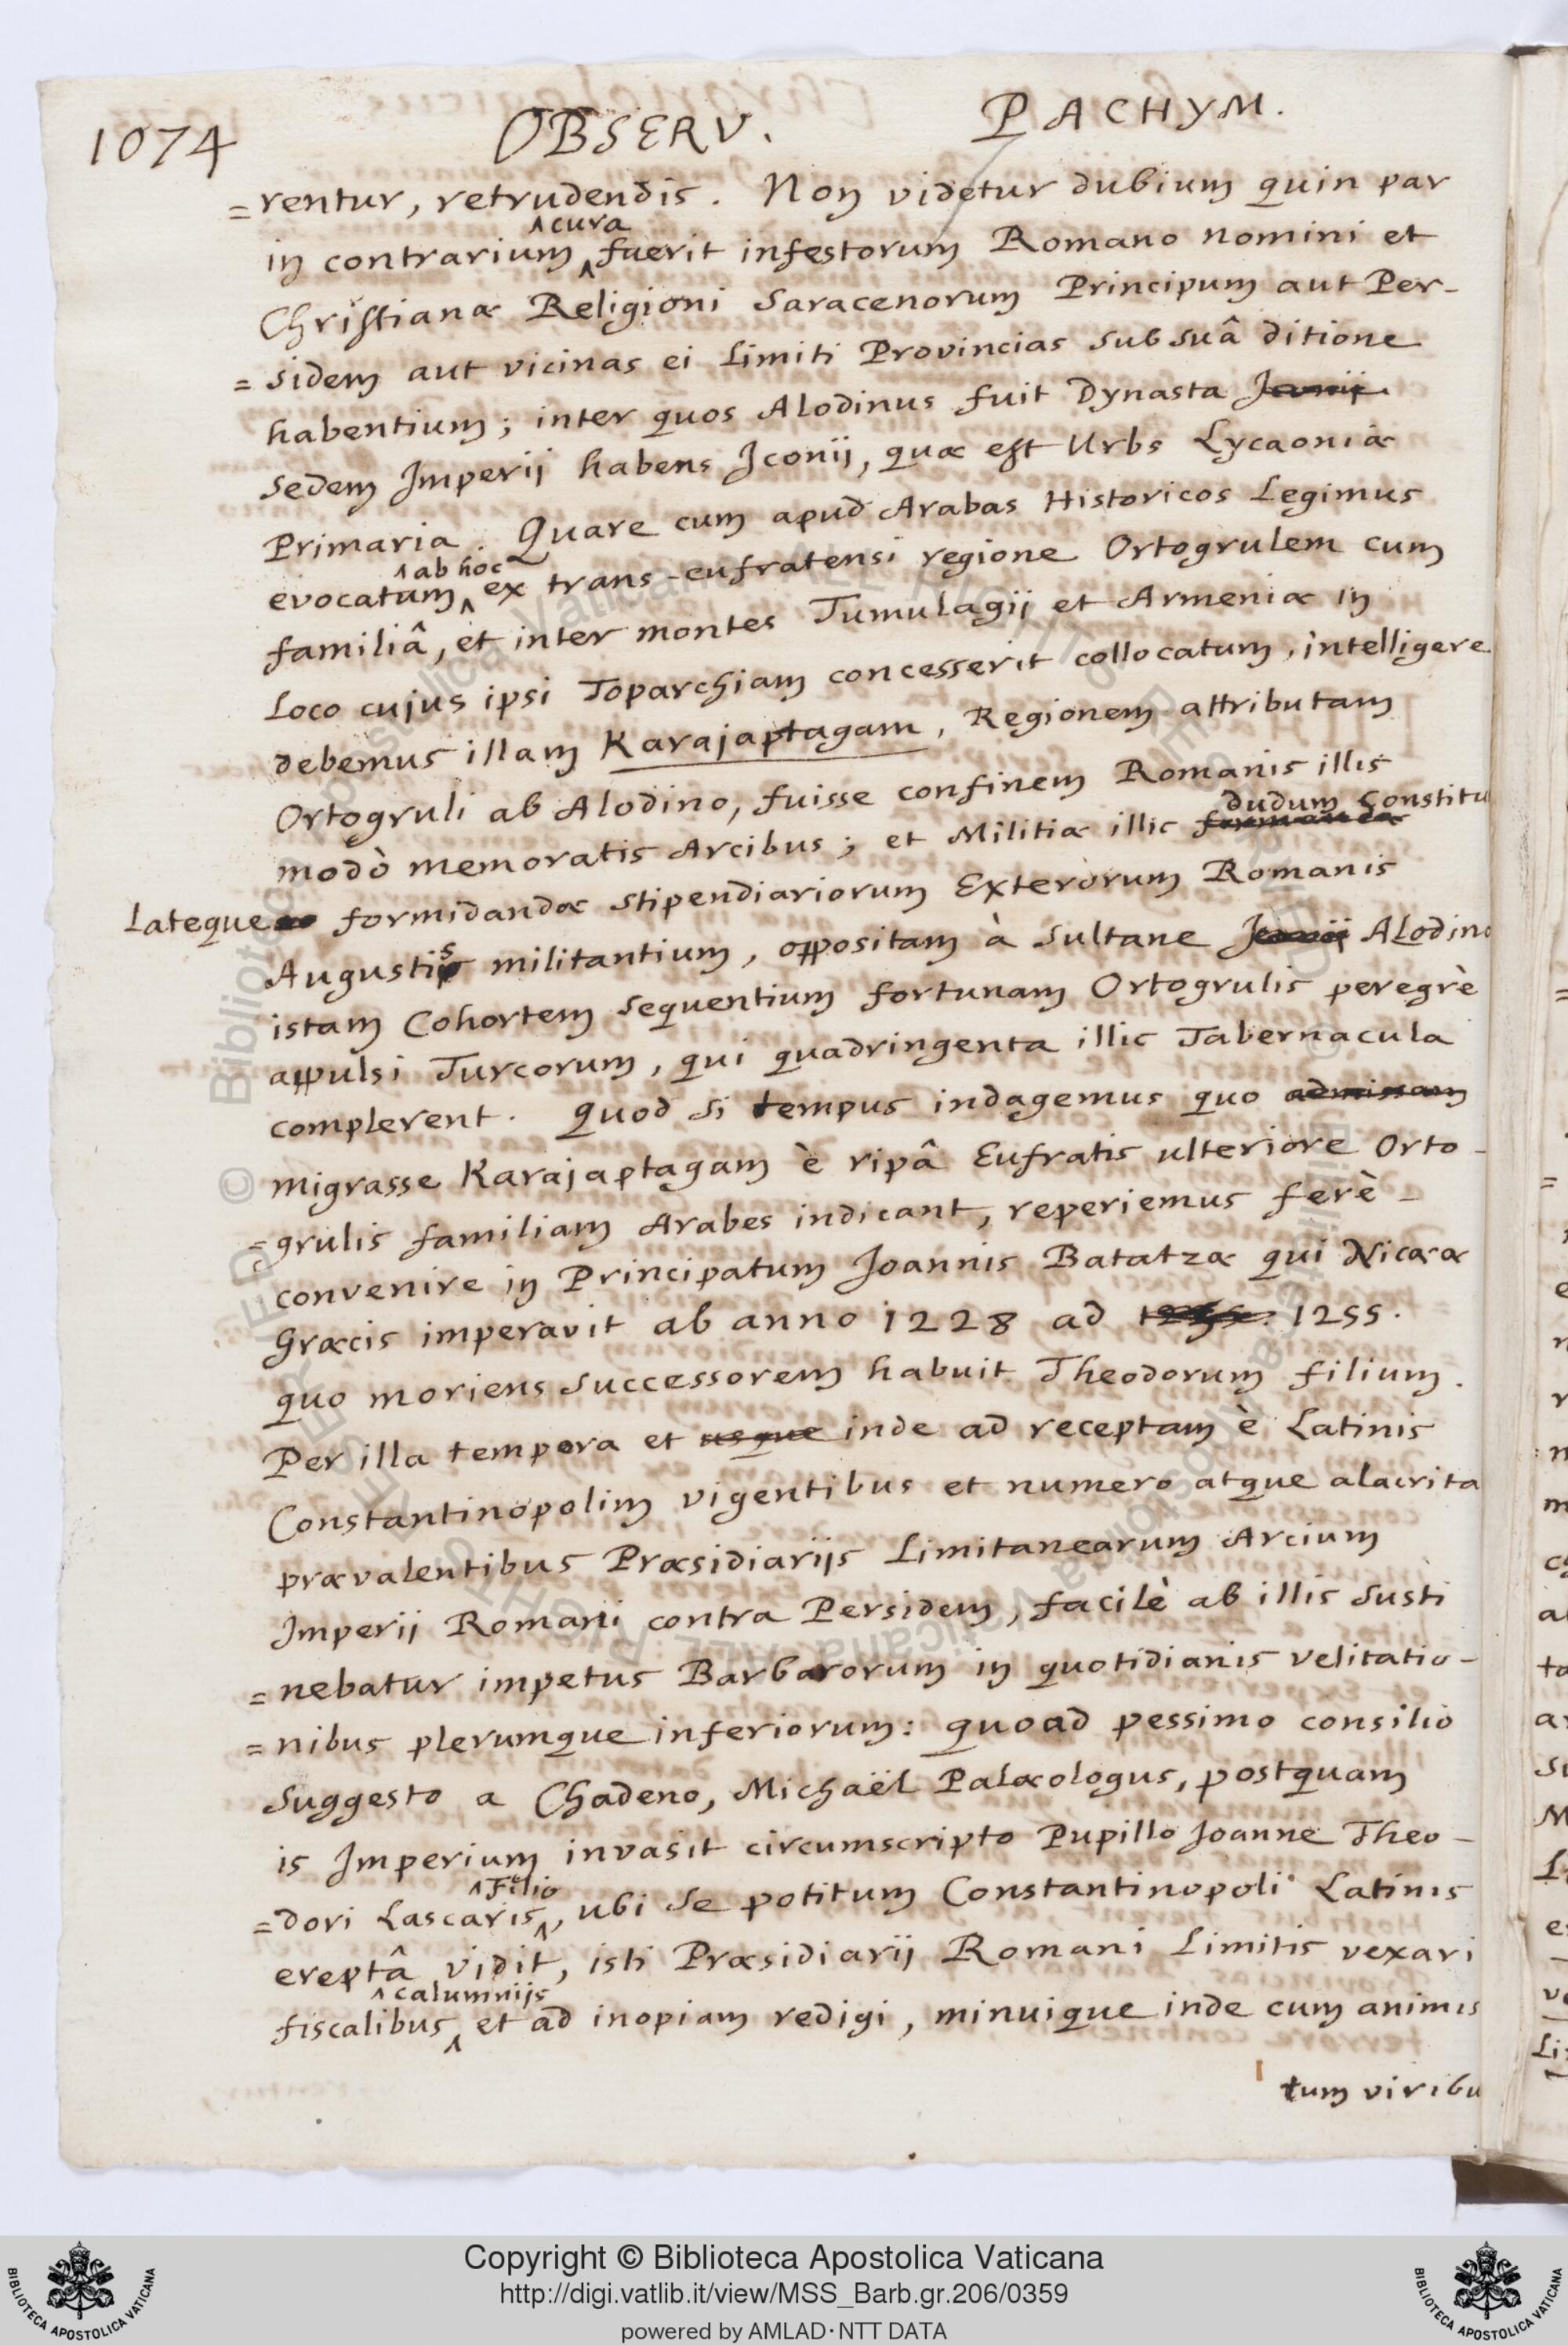 1074 OBSERV. PACHYM.
=rentur, retrudendis. Non videtur dubium quin par
in contrarium ^cura fuerit infestorum Romano nomini et
Christianæ Religioni Saracenorum Principum aut Per-
=sidem aut vicinas ei Limiti Provincias sub suâ ditione
habentium; inter quos Alodinus fuit Dynasta Iconij
sedem Imperij habens Iconij, quæ est Urbs Lycaoniæ
Primaria. Quare cum apud Arabas Historicos Legimus
evocatum ^ab hoc ex trans-eufratensi regione Ortogrulem cum
familiâ, et inter montes Tumulagij et Armeniæ in
Loco cujus ipsi Toparchiam concesserit collocatum, intelligere
debemus illam Karajaptagam, Regionem attributam
Ortogruli ab Alodino, fuisse confinem Romanis illis
modò memoratis Arcibus; et Militiæ illic dudum Constitu
Lateque formidandæ stipendiariorum Exterorum Romanis
Augustis militantium, oppositam à Sultane Iconij Alodino
istam Cohortem sequentium fortunam Ortogrulis peregrè
appulsi Turcorum, qui quadringenta illic Tabernacula
complerent. Quod si tempus indagemus quo
migrasse Karajaptagam è ripâ Eufratis ulteriore Orto-
=grulis familiam Arabes indicant, reperiemus ferè-
convenire in Principatum Joannis Batatzæ qui Nicææ
Græcis imperavit ab anno 1228 ad 1255.
quo moriens successorem habuit Theodorum filium.
Per illa tempora et usque inde ad receptam è Latinis
Constantinopolim vigentibus et numero atque alacrita
prævalentibus Præsidiarijs Limitanearum Arcium
Imperij Romani contra Persidem, facilè ab illis susti
=nebatur impetus Barbarorum in quotidianis velitatio-
=nibus plerumque inferiorum: quoad pessimo consilio
suggesto a Chadeno, Michaël Palæologus, postquam
is Imperium invasit circumscripto Pupillo Joanne Theo-
=dori Lascaris ^Filio, ubi se potitum Constantinopoli Latinis
ereptâ vidit, isti Præsidiarij Romani Limitis vexari
fiscalibus ^calumnijs et ad inopiam redigi, minuique inde cum animis
tum viribu
Copyright © Biblioteca Apostolica Vaticana
http://digi.vatlib.it/view/MSS_Barb.gr.206/0359
powered by AMLAD·NTT DATA
BIBLIOTECA APOSTOLICA VATICANA
BIBLIOTECA APOSTOLICA VATICANA